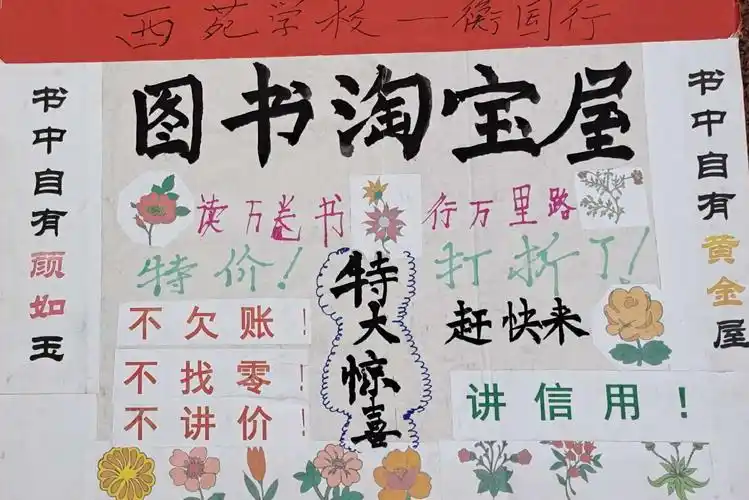 西苑学校—衡国行
图书淘宝屋
书中自有颜如玉
书中自有黄金屋
读万卷书
行万里路
特价!
打折了!
特大惊喜
赶快来
不欠账!
不找零!
不讲价!
讲信用!